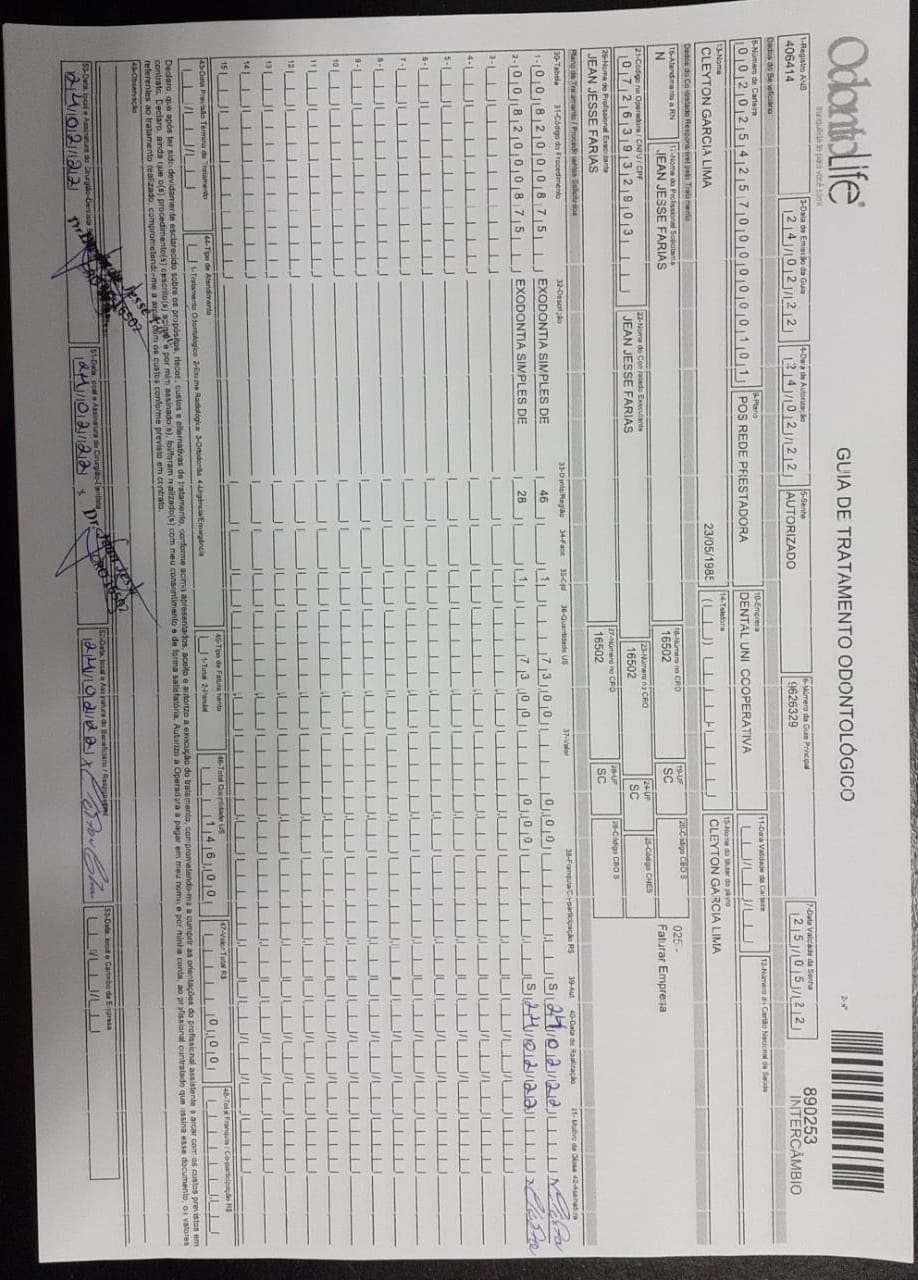 OdontoLife®
tranquilidade para você sorrir
GUIA DE TRATAMENTO ODONTOLÓGICO
2-Nº
890253
INTERCÂMBIO
1-Registro ANS
406414
3-Data de Emissão da Guia
24/02/22
4-Data de Autorização
24/02/22
5-Senha
AUTORIZADO
6-Número da Guia Principal
9626329
7-Data Validade da Senha
25/05/22
Dados do Beneficiário
8-Número da Carteira
00202542570000001101
9-Plano
POS REDE PRESTADORA
10-Empresa
DENTAL UNI COOPERATIVA
11-Data Validade da Carteira
12-Número do Cartão Nacional de Saúde
13-Nome
CLEYTON GARCIA LIMA
23/05/1985
14-Telefone
15-Nome do titular do plano
CLEYTON GARCIA LIMA
Dados do Contratado Responsável pelo Tratamento
16-Atendimento a RN
N
17-Nome do Profissional Solicitante
JEAN JESSE FARIAS
18-Número no CRO
16502
19-UF
SC
20-Código CBO S
025 -
Faturar Empresa
21-Código na Operadora / CNPJ / CPF
07263932903
22-Nome do Contratado Executante
JEAN JESSE FARIAS
23-Número no CRO
16502
24-UF
SC
25-Código CNES
26-Nome do Profissional Executante
JEAN JESSE FARIAS
27-Número no CRO
16502
28-UF
SC
29-Código CBO S
Plano de Tratamento / Procedimentos Solicitados
30-Tabela 31-Código do Procedimento 32-Descrição 33-Dente/Região 34-Face 35-Qtd 36-Quantidade US 37-Valor 38-Franquia/Co-participação R$ 39-Aut 40-Data de Realização 41-Motivo da Glosa 42-Assinatura
1- 00 82000875 EXODONTIA SIMPLES DE 46 1 73,00 0,00 S 24/02/22
2- 00 82000875 EXODONTIA SIMPLES DE 28 1 73,00 0,00 S 24/02/22
3-
4-
5-
6-
7-
8-
9-
10
11
12
13
14
15
43-Data Previsão Término do Tratamento
44-Tipo de Atendimento
1-Tratamento Odontológico 2-Exame Radiológico 3-Ortodontia 4-Urgência/Emergência
45-Tipo de Faturamento
1-Total 2-Parcial
46-Total Quantidade US
146,00
47-Valor Total R$
0,00
48-Total Franquia / Co-participação R$
Declaro, que após ter sido devidamente esclarecido sobre os propósitos, riscos, custos e alternativas de tratamento, conforme acima apresentados, aceito e autorizo a execução do tratamento, comprometendo-me a cumprir as orientações do profissional assistente e arcar com os custos previstos em
contrato. Declaro, ainda que o(s) procedimento(s) descrito(s) acima, e por mim assinado(s), foi/foram realizado(s) com meu consentimento e de forma satisfatória. Autorizo a Operadora a pagar em meu nome e por minha conta, ao profissional contratado que assina esse documento, os valores
referentes ao tratamento realizado, comprometendo-me a arcar com os custos conforme previsto em contrato.
49-Observação
50-Data, local e Assinatura do Cirurgião-Dentista
24/02/22
51-Data, local e Assinatura do Cirurgião-Dentista
24/02/22
52-Data, local e Assinatura do Beneficiário / Responsável
24/02/22
53-Data, local e Carimbo da Empresa